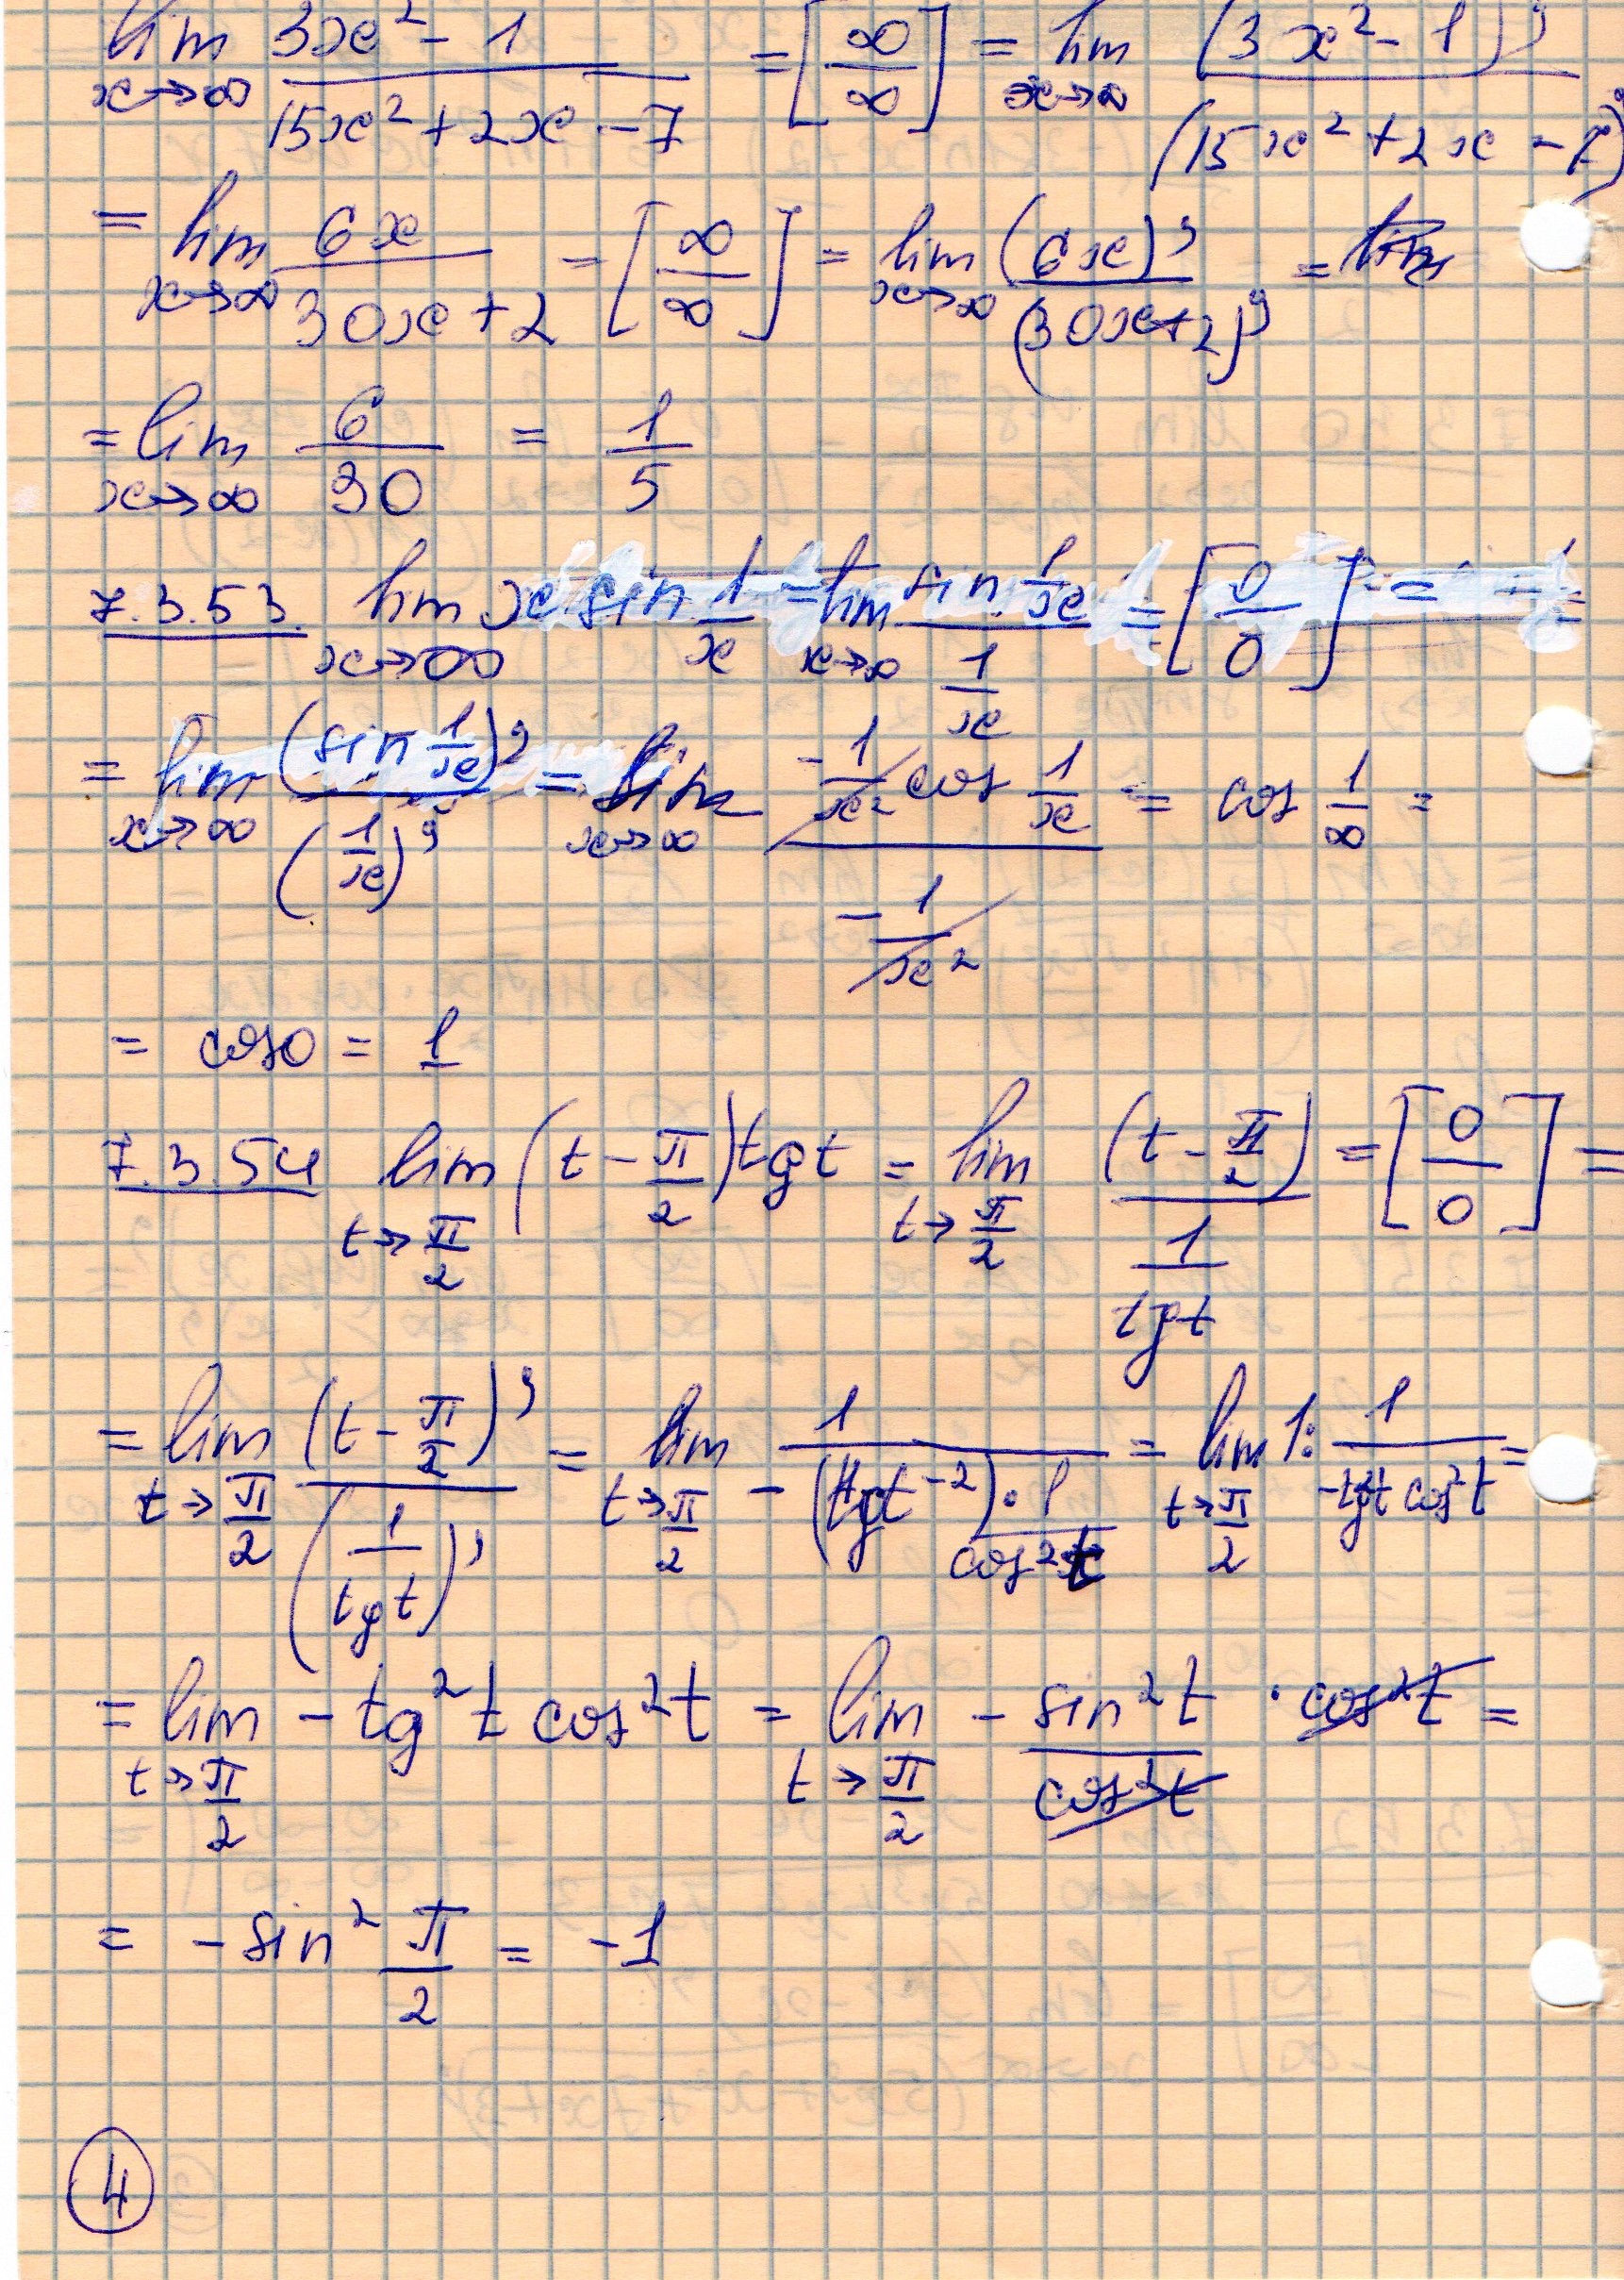 lim x→∞ (3x² - 1)/(15x² + 2x - 7) = [∞/∞] = lim x→∞ (3x² - 1)'/(15x² + 2x - 7)'
= lim x→∞ 6x/(30x + 2) = [∞/∞] = lim x→∞ (6x)'/(30x + 2)' =
= lim x→∞ 6/30 = 1/5
7.3.53. lim x→∞ x sin 1/x = lim x→∞ (sin 1/x)/(1/x) = [0/0] =
= lim x→∞ (sin 1/x)'/(1/x)' = lim x→∞ (-1/x² cos 1/x)/(-1/x²) = cos 1/∞ =
= cos0 = 1
7.3.54 lim t→π/2 (t - π/2) tg t = lim t→π/2 (t - π/2)/(1/tg t) = [0/0] =
= lim t→π/2 (t - π/2)'/(1/tg t)' = lim t→π/2 1/(-(tg t⁻²)·1/cos²t) = lim t→π/2 1 : 1/(-tg²t cos²t) =
= lim t→π/2 - tg²t cos²t = lim t→π/2 - sin²t/cos²t · cos²t =
= - sin² π/2 = -1
4